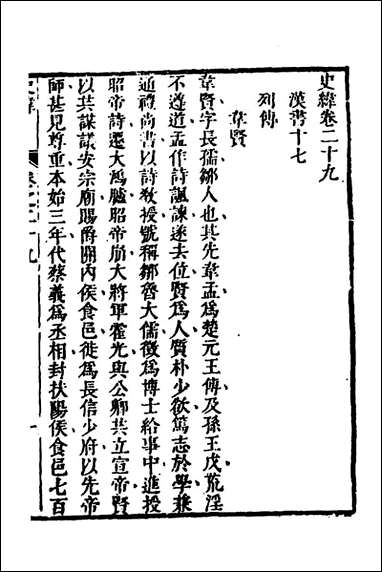 史緯卷二十九
漢書十七
列傳
韋賢
韋賢字長孺鄒人也其先韋孟爲楚元王傅及孫王戊荒淫
不遵道孟作詩諷諫遂去位賢爲人質朴少欲篤志於學兼
通禮尚書以詩教授號稱鄒魯大儒徵爲博士給事中進授
昭帝詩遷大鴻臚昭帝崩大將軍霍光與公卿共立宣帝賢
以共謀議安宗廟賜爵關內侯食邑徙爲長信少府以先帝
師甚見尊重本始三年代蔡義爲丞相封扶陽侯食邑七百